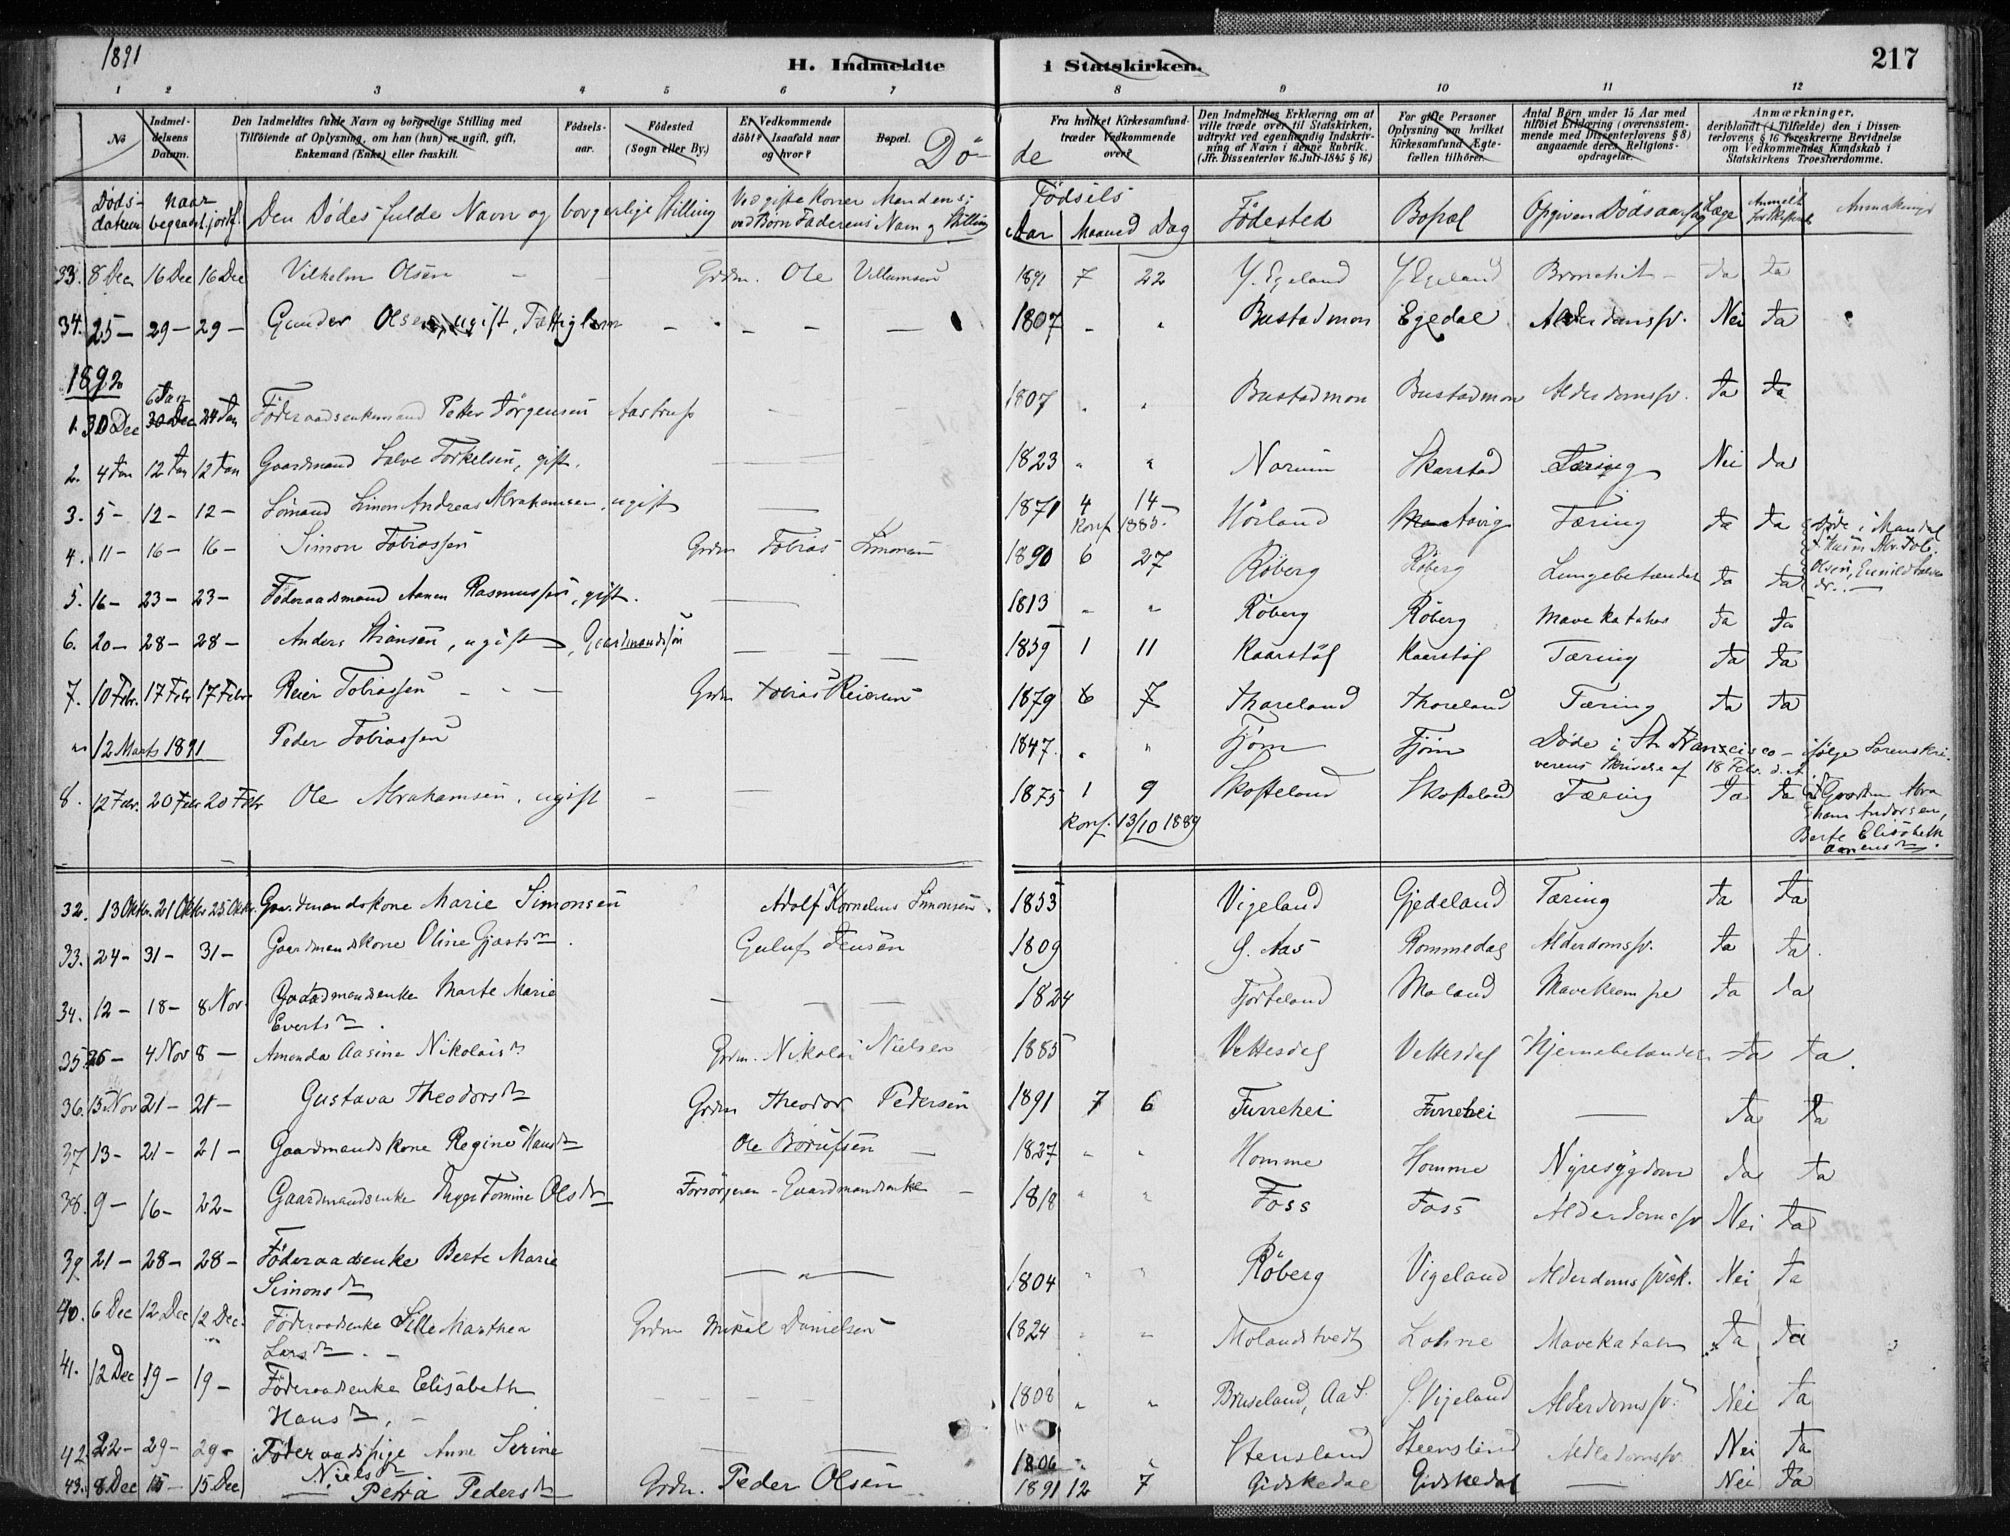 1891
H. Indmeldte i Statskirken.
217
1 2 3 4 5 6 7 8 9 10 11 12
No
Indmel-
delsens
Datum.
Den Indmeldtes fulde Navn og borgerlige Stilling med
Tilföiende af Oplysning, om han (hun) er ugift, gift,
Enkemand (Enke) eller fraskilt.
Födsels-
aar.
Födested
(Sogn eller By.)
Er Vedkommende
döbt? Isaafald naar
og hvor?
Bopæl.
Fra hvilket Kirkesamfund
træder Vedkommende
over?
Den Indmeldtes Erklæring om at
ville træde over til Statskirken,
udtrykt ved egenhændig Indskriv-
ning af Navn i denne Rubrik.
(Jfr. Dissenterlov 16. Juli 1845 § 16)
For gifte Personer
Oplysning om hvilket
Kirkesamfund Ægte-
fællen tilhörer.
Antal Børn under 15 Aar med
tilföiet Erklæring (overensstem-
mende med Dissenterlovens § 8)
angaaende deres Religions-
opdragelse.
Anmærkninger,
deriblandt (i Tilfælde) den i Dissen-
terlovens § 16 foreskrevne Bevidnelse
om Vedkommendes Kundskab i
Statskirkens Troeslærdomme.
Dö- de
Döds-
datum
Naar
begravet. jordf.
Den Dödes fulde Navn og borgerlige Stilling
Ved gifte Koner Mandens;
ved Börn Faderens Navn og Stilling
Födsels
Aar Maaned Dag
Födested Bopæl Opgiven Dödsaarsag Læge
Anmeldt
for Skifteret
33. 8 Dec 16 Dec 16 Dec Vilhelm Olsen - - Grdm. Ole Villumsen 1891 7 22 Y. Egeland Y. Egeland Bronchit - Ja Ja
34. 25 - 29 - 29 - Gunder Olsen, ugift, Fattiglem - - - - 1807 " " Bustadmon Egedal Alderdomssv. Nei Ja
1892
6 Jan
1. 30 Dec 30 Dec 24 Jan Föderaadsenkemand Peter Jörgensen Aastrup 1807 " " Bustadmon Bustadmon Alderdomssv. Ja Ja
2. 4 Jan 12 Jan 12 Jan Gaardmand Salve Torkelsen, gift. 1823 " " Norum Skarstad Tæring Nei Ja
3. 5 - 12 - 12 - Sömand Simon Andreas Abrahamsen, ugift 1871 4 14 Hörland Tæring Ja Ja
Konf. 1885.
Döde i Mandal
4. 11 - 16 - 16 - Simon Tobiassen Grdm Tobias Simonsen 1890 6 27 Röberg Röberg Lungebetændel Ja Ja
5. 16 - 23 - 23 - Föderaadsmand Aanen Rasmussen, gift. 1813 " " Röberg Röberg Mavekatahr Ja Ja
6. 20 - 28 - 28 - Anders Stiansen, ugift, Gaardmandssön 1859 1 11 Kaarstöl Kaarstöl Tæring Ja Ja
7. 10 Febr. 17 Febr 17 Febr Reier Tobiassen - - - Grdm Tobias Reiersen 1879 6 7 Thoreland Thoreland Tæring Ja Ja
" 12 Marts 1891 Peder Tobiassen 1847. " " Tjöm Tjöm Döde i St. Franzisco - ifölge Sorenskri-
verens Skrivelse af 18 Febr. d. A.
8. 12 Febr. 20 Febr 20 Febr Ole Abrahamsen, ugift - 1875 1 9 Skofteland Skofteland Tæring Ja Ja
Konf. 13/10 1889
Gaardm Abra
ham Andersen,
Berte Elisabeth
32. 13 Oktr. 21 Oktr 25 Oktr. Gaardmandskone Marie Simonsen Adolf Kornelius Simonsen. 1853 Vigeland Gjedeland Tæring Ja Ja
33. 24 - 31 - 31 - Gaardmandskone Oline Gjertsdr. Guluf Jensen 1809 S. Aas Rommedag Alderdomssv. Ja Ja.
34. 12 - 18 - 8 Nov. Gaardmandsenke Marte Marie
Evertsdr. 1824 Fjorteland Moland Mavekrampe Ja Ja
35. 26 - 4 Nov 8 - Amanda Aasine Nikolaisdr Grdm. Nikolai Nielsen 1885 Vettesdal Vettesdal Hjernebetændelse Ja Ja.
36. 15 Nov 21 - 21 - Gustava Theodorsdr Grdm Theodor Pedersen 1891 7 6 Furrehei Furrehei - Ja Ja
37 13 - 21 - 21 - Gaardmandskone Regine Hansdr Ole Börufsen 1827 " " Homme Homme Nyresygdom Ja Ja
38. 9 - 16 - 22 - Gaardmandsenke Inger Tomine Olsdr Forsörgeren - Gaardmandsenke - 1818 " " Foss Foss Alderdomssv Nei Ja
39 21 - 28 - 28 - Föderaadsenke Berte Marie
Simonsdr 1804 " " Röberg Vigeland Alderdomssvæk. Nei Ja
40. 6 Dec 12 Dec 12 Dec. Föderaadsenke Sille Marthea
Larsdr. - Grdm Mikal Danielsen 1824 Molandstvedt Lohne Mavekatahr Ja Ja
41. 12 Dec 19 - 19 - Föderaadsenke Elisabeth
Hansdr. - 1808 " " Bruseland, Aas S. Vigeland Alderdomssv. Nei Ja
42. 22 - 29 - 29 - Föderaadspige Anne Serine
Nielsdr 1806 " " Stensland Steensland Alderdomssv Nei Ja
43. 8 Dec 15 - 15 Dec Petra Pedersdr Grdm. Peder Olsen 1891 12 7 Gidskedal Gidskedal - Nei Ja